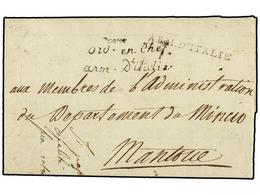 ARM. D'ITALIE
Ord. en Chef
arm. D'Italie
aux Membres de l'Administration
du Departement du Mincio
Mantoue